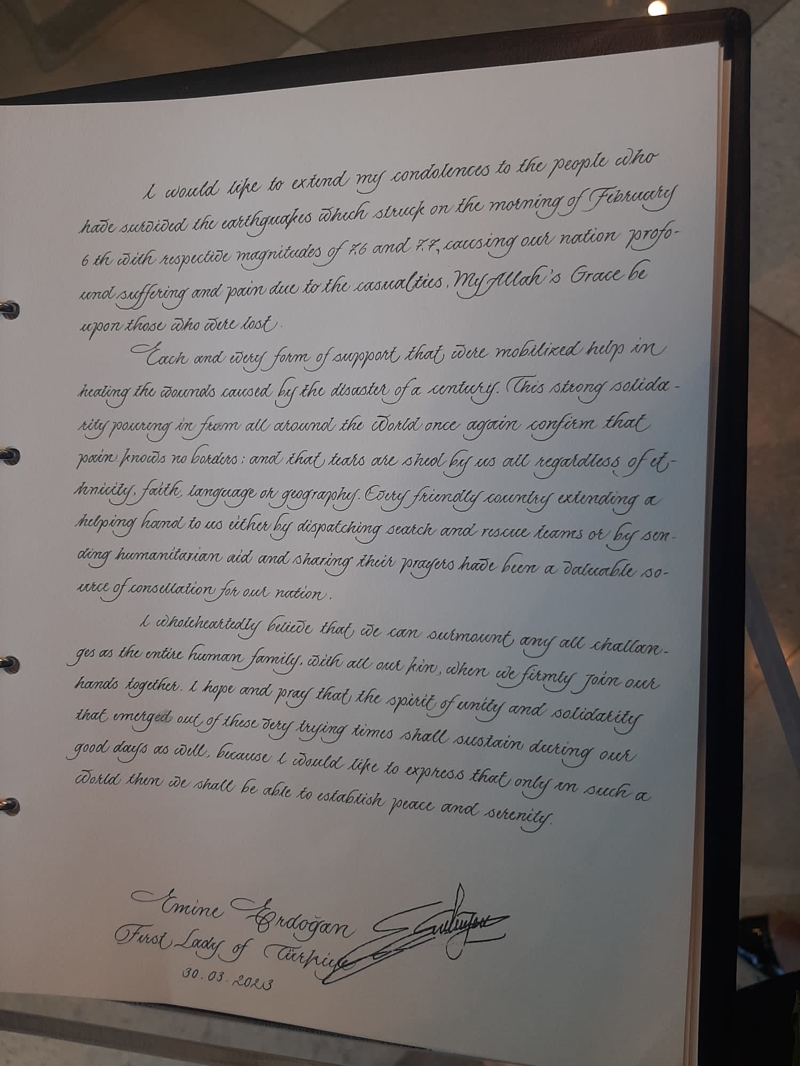 I would like to extend my condolences to the people who
have survived the earthquakes which struck on the morning of February
6 th with respective magnitudes of 7.6 and 7.7, causing our nation profo-
und suffering and pain due to the casualties. My Allah's Grace be
upon those who were lost.
Each and every form of support that were mobilized help in
healing the wounds caused by the disaster of a century. This strong solida-
rity pouring in from all around the world once again confirm that
pain knows no borders; and that tears are shed by us all regardless of et-
hnicity, faith, language or geography. Every friendly country extending a
helping hand to us either by dispatching search and rescue teams or by sen-
ding humanitarian aid and sharing their prayers have been a valuable so-
urce of consellation for our nation.
I wholeheartedly believe that we can surmount any all challan-
ges as the entire human family, with all our kin, when we firmly join our
hands together. I hope and pray that the spirit of unity and solidarity
that emerged out of these very trying times shall sustain during our
good days as well, because I would like to express that only in such a
world then we shall be able to establish peace and serenity.
Emine Erdoğan
First Lady of Türkiye
30.03.2023